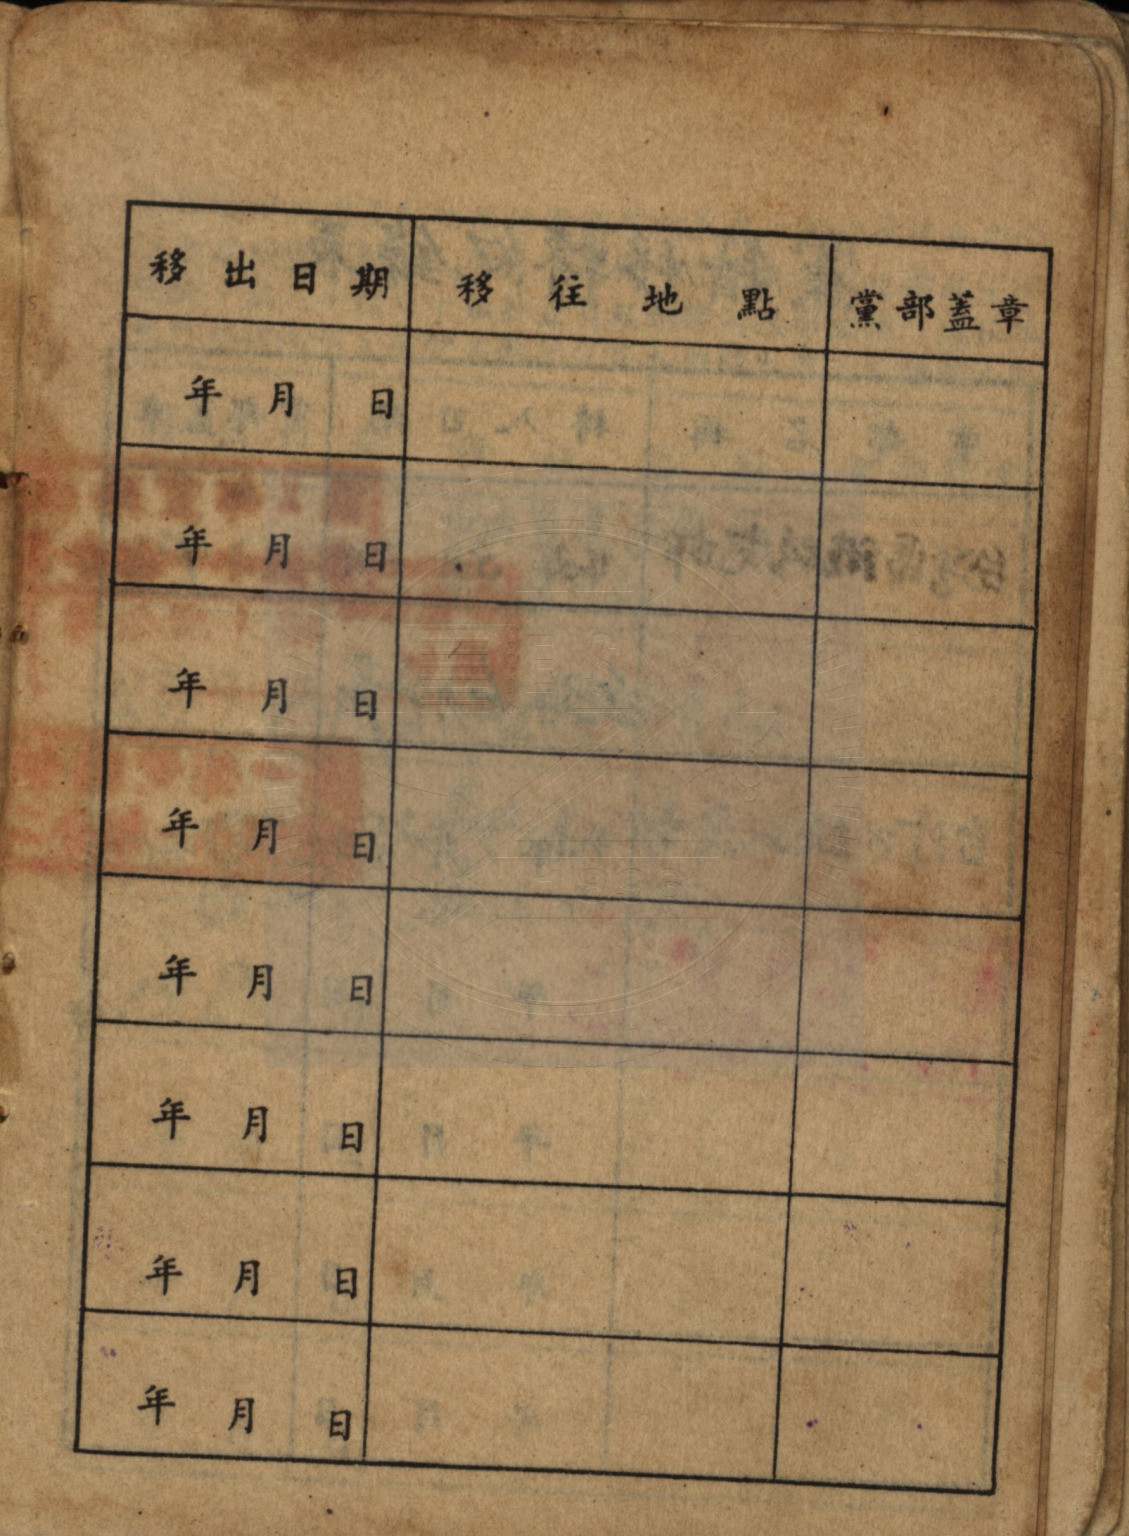 移出日期 移往地點 黨部蓋章
年 月 日
年 月 日
年 月 日
年 月 日
年 月 日
年 月 日
年 月 日
年 月 日